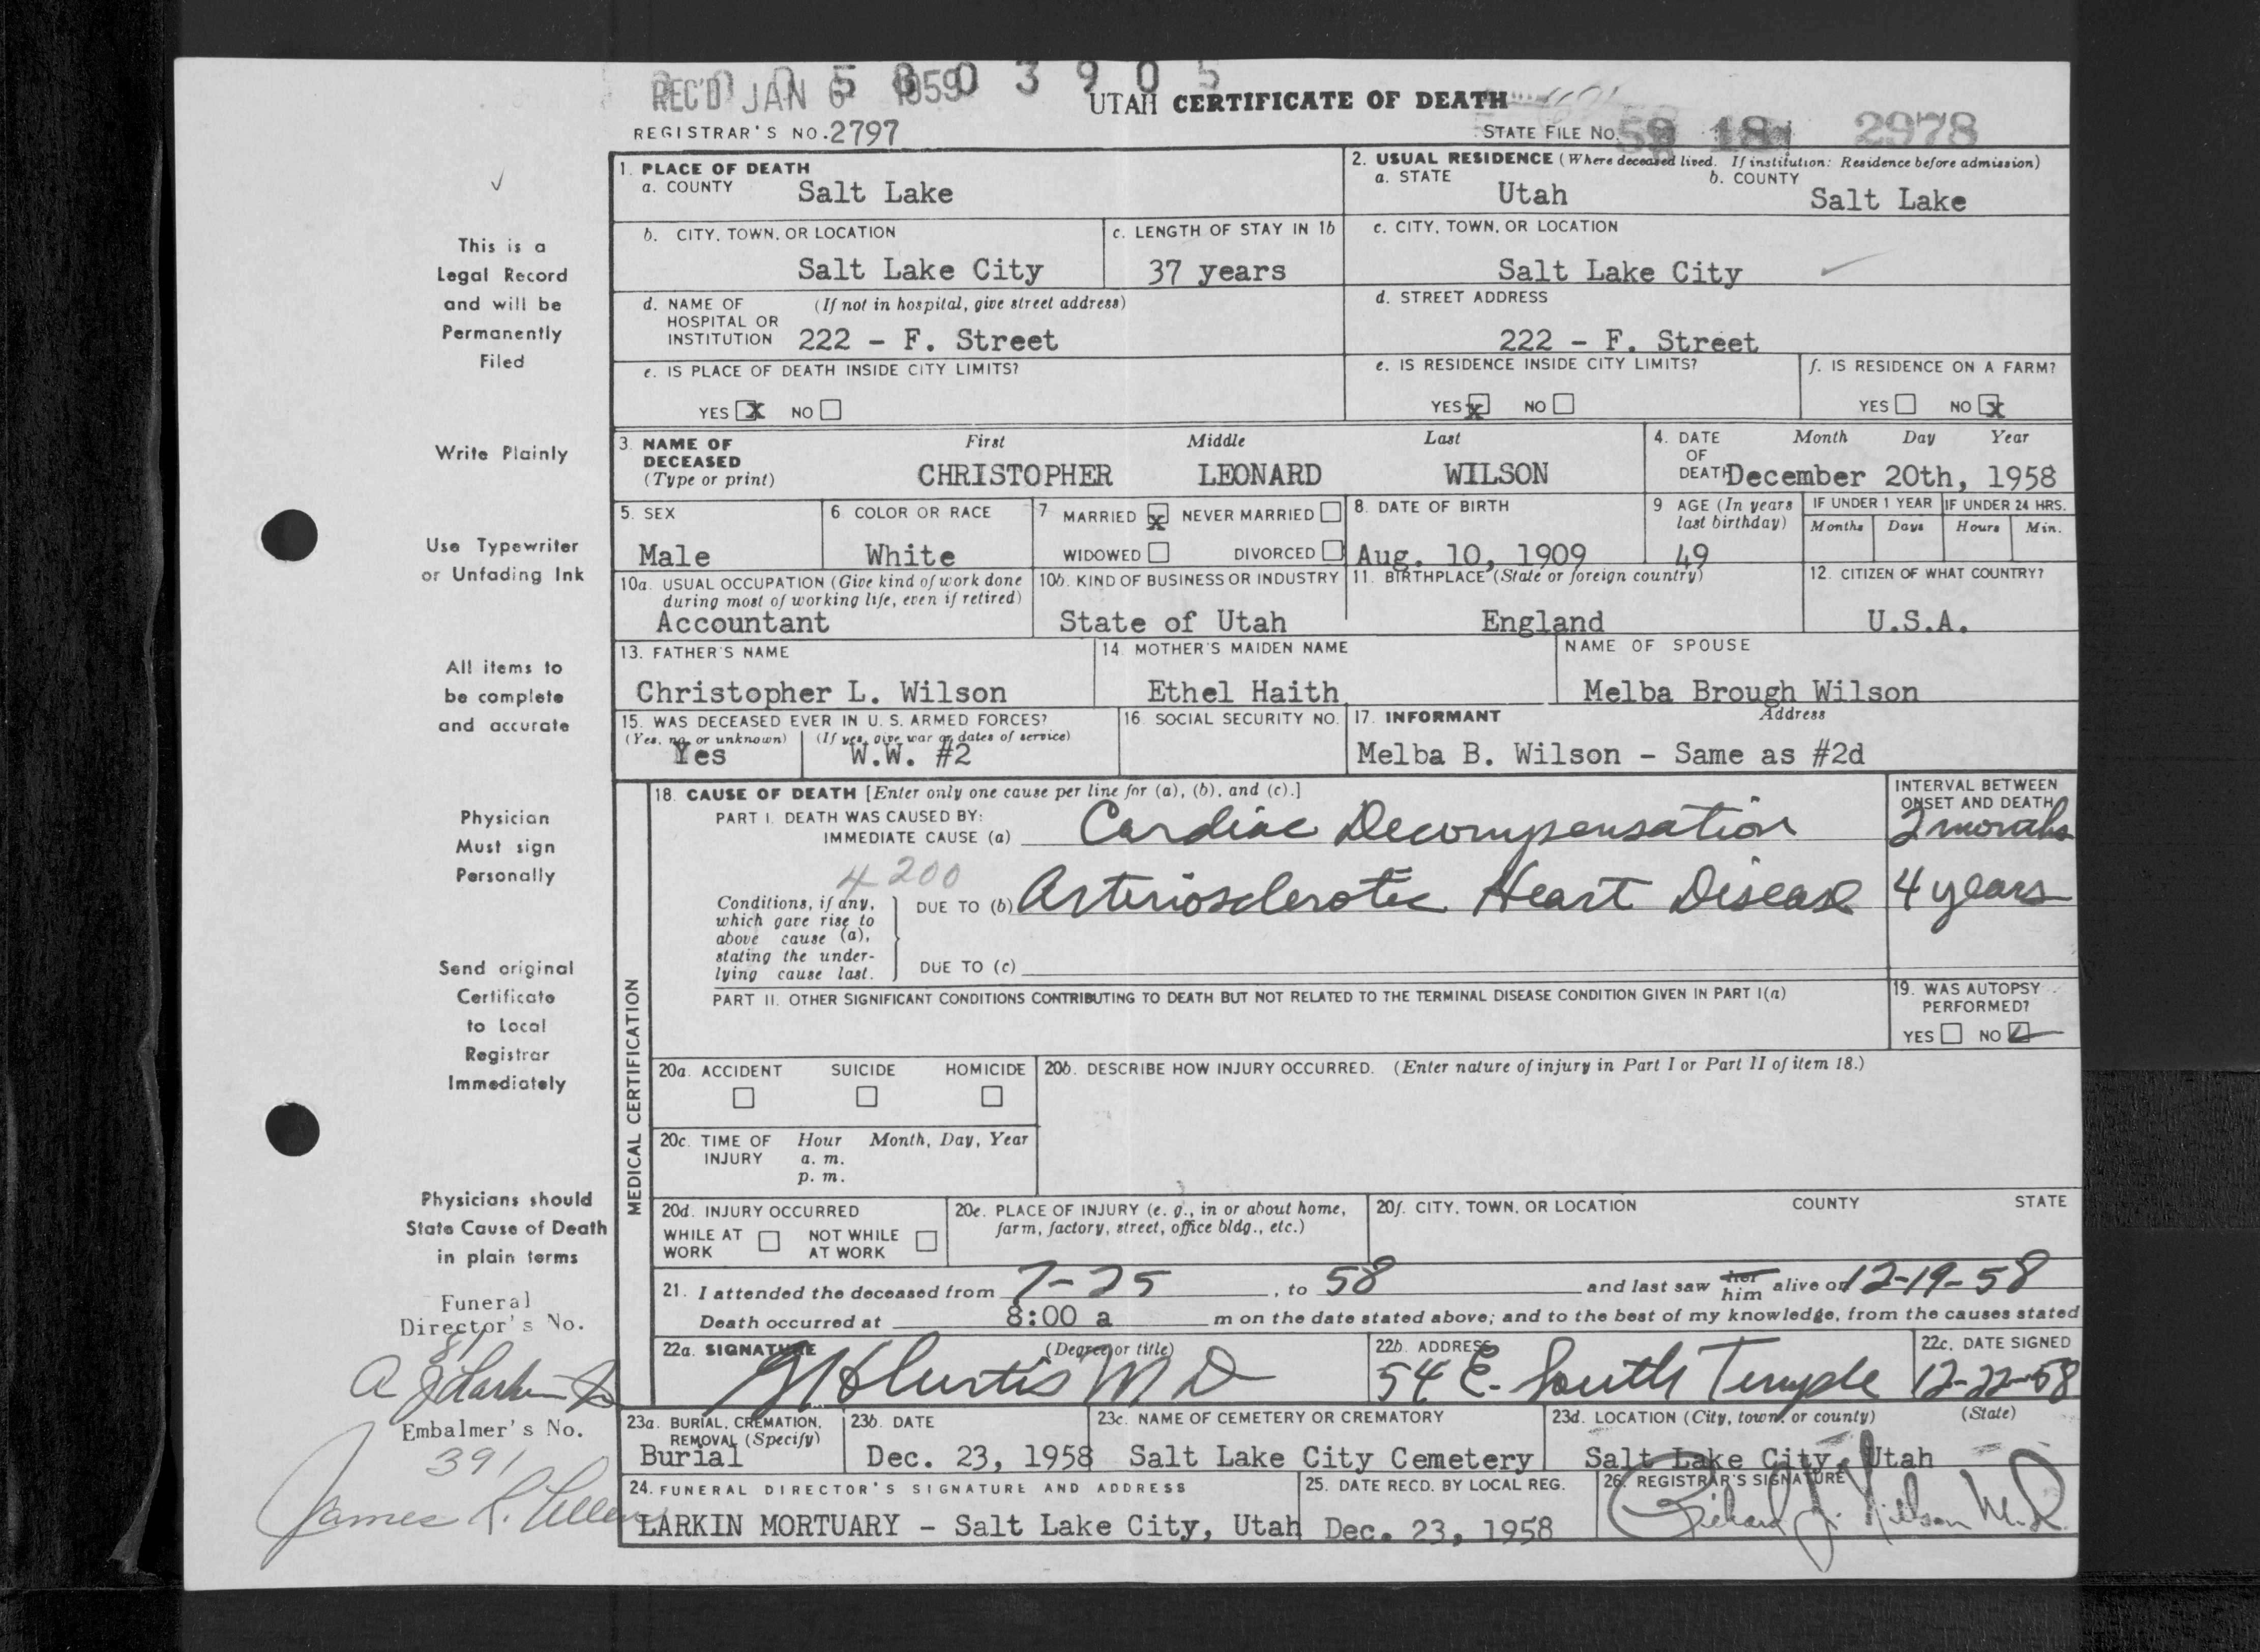 REC'D JAN 6 1959
0 5 8 0 3 9 0 5
UTAH CERTIFICATE OF DEATH
REGISTRAR'S NO. 2797
STATE FILE NO. 58 18 2978
1. PLACE OF DEATH
a. COUNTY Salt Lake
2. USUAL RESIDENCE (Where deceased lived. If institution: Residence before admission)
a. STATE Utah b. COUNTY Salt Lake
b. CITY, TOWN, OR LOCATION Salt Lake City
c. LENGTH OF STAY IN 1b 37 years
c. CITY, TOWN, OR LOCATION Salt Lake City
d. NAME OF HOSPITAL OR INSTITUTION (If not in hospital, give street address) 222 - F. Street
d. STREET ADDRESS 222 - F. Street
e. IS PLACE OF DEATH INSIDE CITY LIMITS?
YES X NO
e. IS RESIDENCE INSIDE CITY LIMITS?
YES X NO
f. IS RESIDENCE ON A FARM?
YES NO X
3. NAME OF DECEASED (Type or print)
First Middle Last
CHRISTOPHER LEONARD WILSON
4. DATE OF DEATH Month Day Year
December 20th, 1958
5. SEX Male
6. COLOR OR RACE White
7 MARRIED X NEVER MARRIED
WIDOWED DIVORCED
8. DATE OF BIRTH Aug. 10, 1909
9 AGE (In years last birthday) 49
IF UNDER 1 YEAR Months Days
IF UNDER 24 HRS. Hours Min.
10a. USUAL OCCUPATION (Give kind of work done during most of working life, even if retired)
Accountant
10b. KIND OF BUSINESS OR INDUSTRY
State of Utah
11. BIRTHPLACE (State or foreign country)
England
12. CITIZEN OF WHAT COUNTRY?
U.S.A.
13. FATHER'S NAME
Christopher L. Wilson
14. MOTHER'S MAIDEN NAME
Ethel Haith
NAME OF SPOUSE
Melba Brough Wilson
15. WAS DECEASED EVER IN U. S. ARMED FORCES?
(Yes, no, or unknown) (If yes, give war or dates of service)
Yes W.W. #2
16. SOCIAL SECURITY NO.
17. INFORMANT Address
Melba B. Wilson - Same as #2d
MEDICAL CERTIFICATION
18. CAUSE OF DEATH [Enter only one cause per line for (a), (b), and (c).]
INTERVAL BETWEEN ONSET AND DEATH
PART I. DEATH WAS CAUSED BY:
IMMEDIATE CAUSE (a) Cardiac Decompensation 2 months
4200
Conditions, if any, which gave rise to above cause (a), stating the underlying cause last.
DUE TO (b) Arteriosclerotic Heart Disease 4 years
DUE TO (c)
PART II. OTHER SIGNIFICANT CONDITIONS CONTRIBUTING TO DEATH BUT NOT RELATED TO THE TERMINAL DISEASE CONDITION GIVEN IN PART I(a)
19. WAS AUTOPSY PERFORMED?
YES NO
20a. ACCIDENT SUICIDE HOMICIDE
20b. DESCRIBE HOW INJURY OCCURRED. (Enter nature of injury in Part I or Part II of item 18.)
20c. TIME OF INJURY Hour Month, Day, Year
a. m.
p. m.
20d. INJURY OCCURRED
WHILE AT WORK NOT WHILE AT WORK
20e. PLACE OF INJURY (e. g., in or about home, farm, factory, street, office bldg., etc.)
20f. CITY, TOWN, OR LOCATION COUNTY STATE
21. I attended the deceased from 7-25, to 58 and last saw her him alive on 12-19-58
Death occurred at 8:00 a m on the date stated above; and to the best of my knowledge, from the causes stated
22a. SIGNATURE (Degree or title)
Curtis M D
22b. ADDRESS
54 E. South Temple
22c. DATE SIGNED
12-22-58
23a. BURIAL, CREMATION, REMOVAL (Specify)
Burial
23b. DATE
Dec. 23, 1958
23c. NAME OF CEMETERY OR CREMATORY
Salt Lake City Cemetery
23d. LOCATION (City, town, or county) (State)
Salt Lake City, Utah
24. FUNERAL DIRECTOR'S SIGNATURE AND ADDRESS
LARKIN MORTUARY - Salt Lake City, Utah
25. DATE RECD. BY LOCAL REG.
Dec. 23, 1958
26. REGISTRAR'S SIGNATURE
Richard J. Nilson M.D.
This is a
Legal Record
and will be
Permanently
Filed
Write Plainly
Use Typewriter
or Unfading Ink
All items to
be complete
and accurate
Physician
Must sign
Personally
Send original
Certificate
to Local
Registrar
Immediately
Physicians should
State Cause of Death
in plain terms
Funeral
Director's No.
81
Embalmer's No.
391
James R.